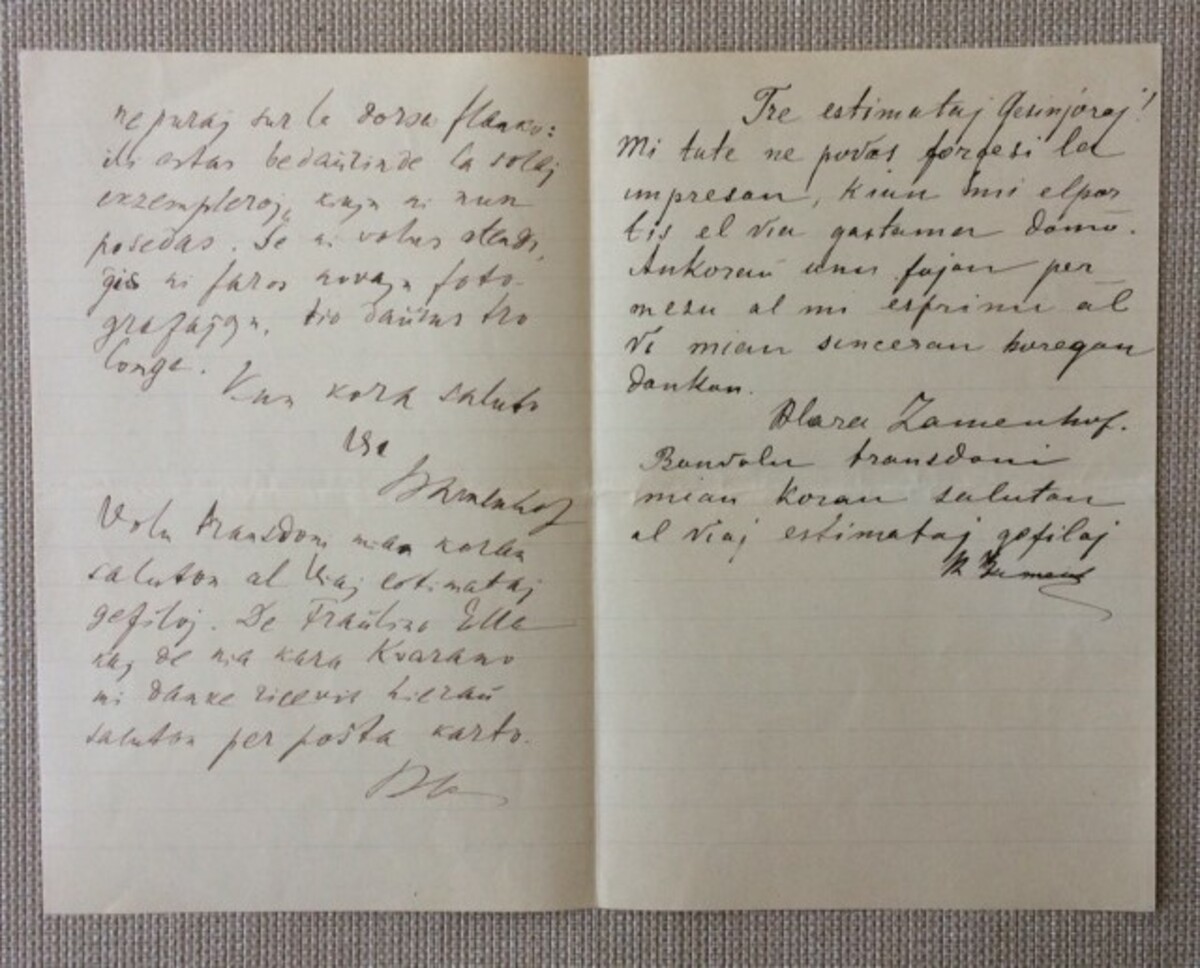 ne puraj sur la dorsa flanko:
ili estas bedaŭrinde la solaj
ekzempleroj, kiujn ni nun
posedas. Se ni volus atendi,
ĝis ni faros novajn foto-
grafaĵojn, tio daŭrus tro
longe.
Kun kora saluto
Via
Zamenhof
Volu transdoni mian koran
saluton al Viaj estimataj
gefiloj. De Fraŭlino Ella
kaj de nia kara Kvarano
mi danke ricevis hieraŭ
saluton per poŝta karto.
Tre estimataj Gesinjoroj!
Mi tute ne povas forgesi la
impreson, kiun mi elpor
tis el via gastama domo.
Ankoraŭ unu fojon per
mesu al mi esprimi al
Vi mian sinceran koregan
dankon.
Klara Zamenhof.
Bonvolu transdoni
mian koran saluton
al viaj estimataj gefiloj
K Zamenh